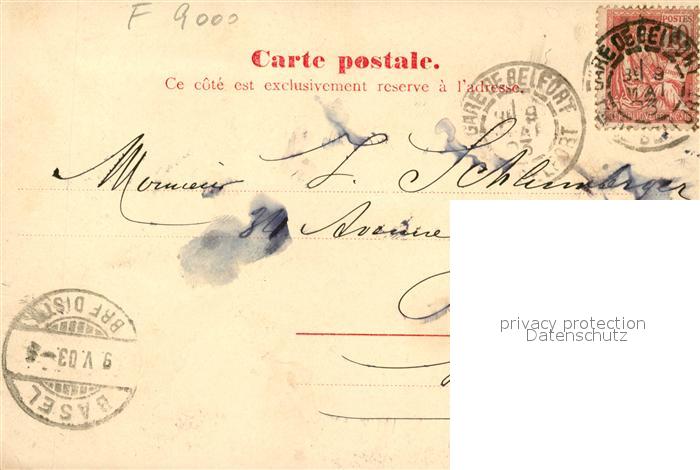 F 9000
Carte postale.
Ce côté est exclusivement reserve à l'adresse.
GARE DE BELFORT
GARE DE BELFORT
POSTES
Monsieur L. Schlumberger
Avenue
BASEL
9.V.03
BRF DIST
privacy protection
Datenschutz